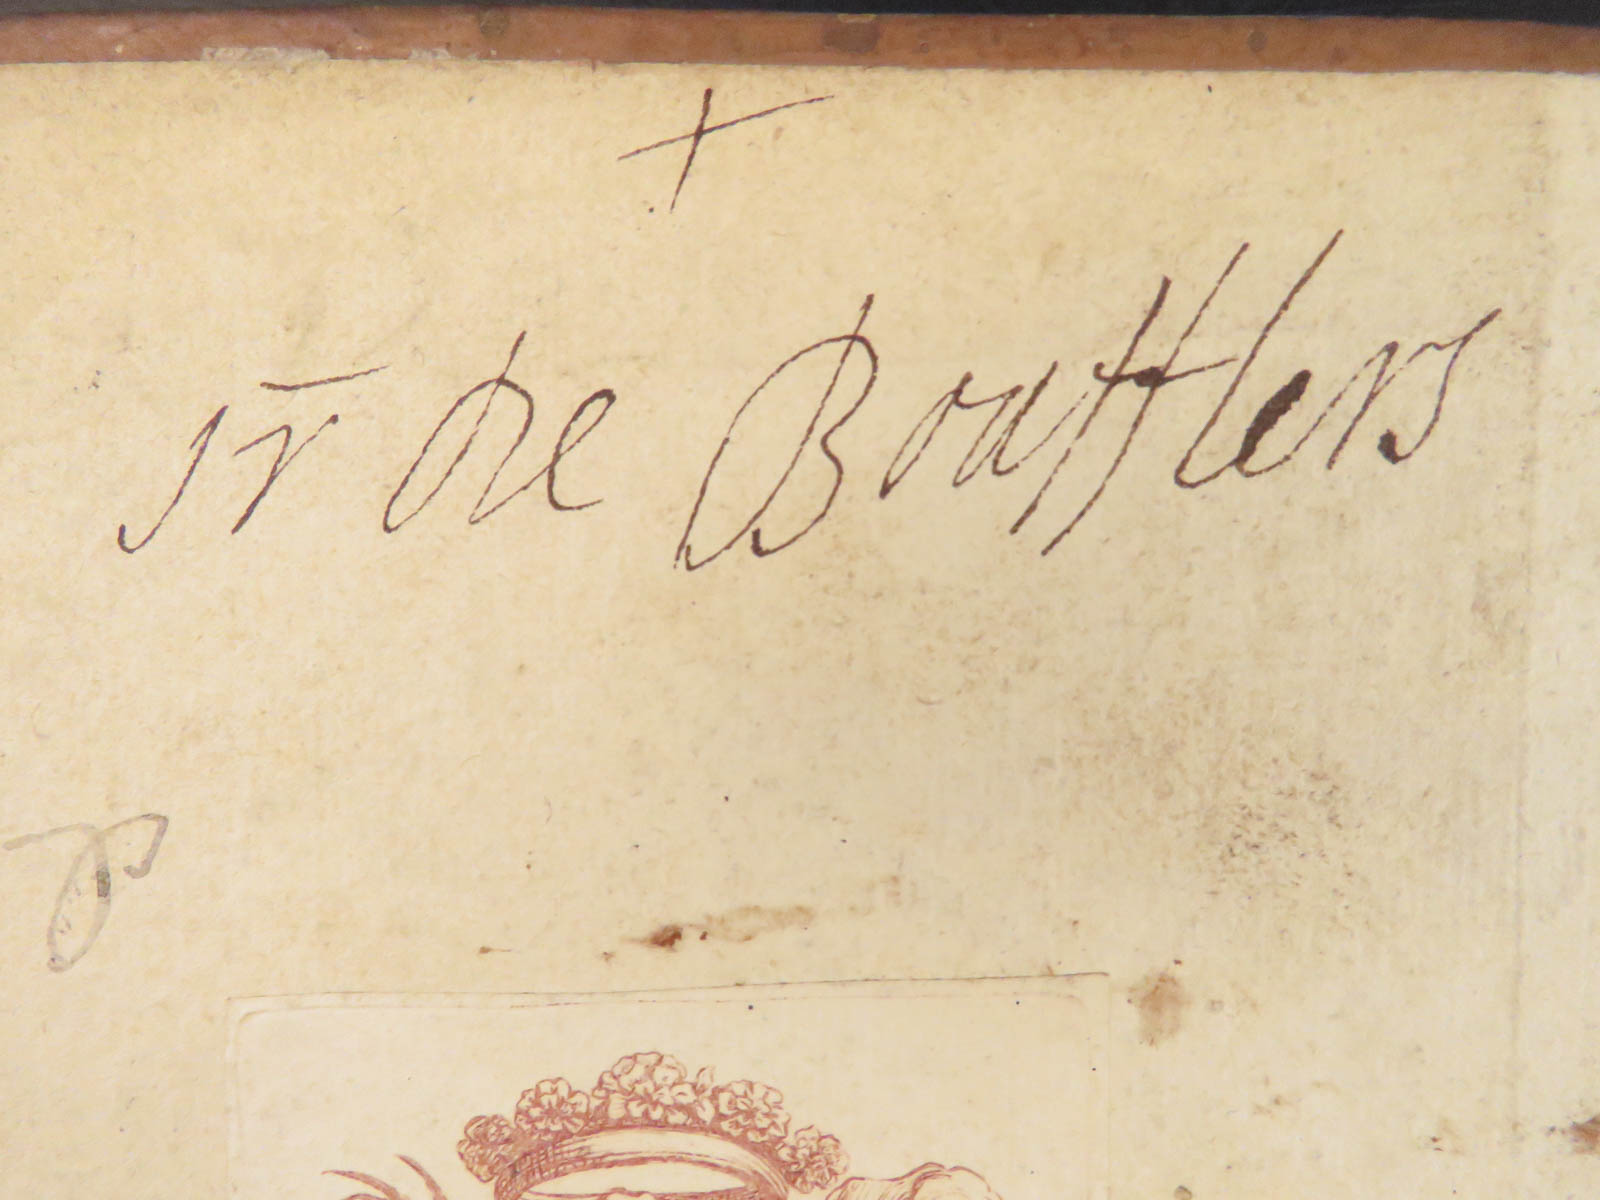 +
sr̄ de Boufflers